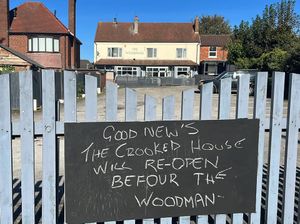 GOOD NEW'S
THE CROOKED HOUSE
WILL RE-OPEN
BEFOUR THE
WOODMAN